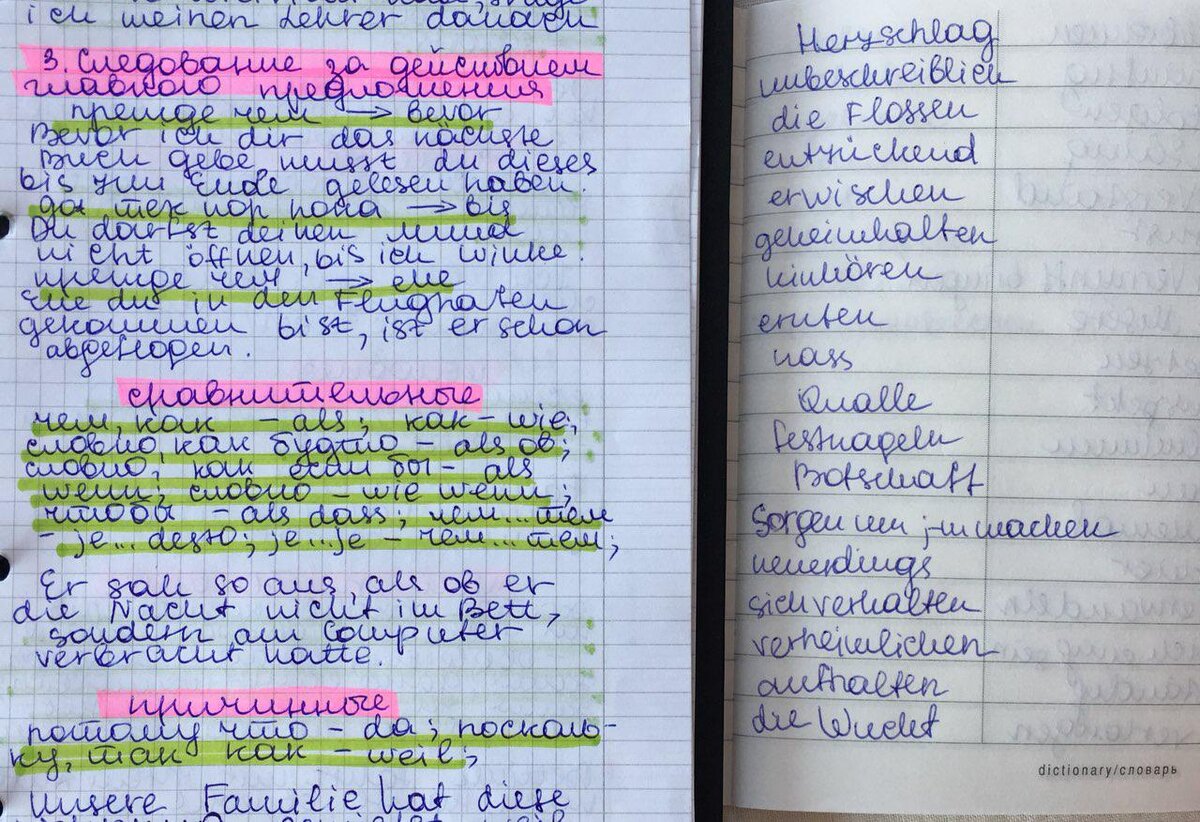 ich meinen Lehrer danach
3. Следование за действием
главного предложения
прежде чем → bevor
Bevor ich dir das nächste
Buch gebe, musst du dieses
bis zum Ende gelesen haben.
до тех пор пока → bis
Du darfst deinen Mund
nicht öffnen, bis ich winke.
прежде чем → ehe
Ehe du in den Flughafen
gekommen bist, ist er schon
abgeflogen.
сравнительные
чем, как – als; как – wie;
словно, как будто – als ob;
словно, как если бы – als
wenn, словно – wie wenn;
чтобы – als dass; чем...тем
– je... desto; je...je – чем...тем;
Er sah so aus, als ob er
die Nacht nicht im Bett,
sondern am Computer
verbracht hatte.
причинные
потому что – da; посколь-
ку, так как – weil;
Unsere Familie hat diese
Herzschlag
unbeschreiblich
die Flossen
entzückend
erwischen
geheimhalten
hinhören
ernten
nass
Qualle
festnageln
Botschaft
Sorgen um j-n machen
neuerdings
sich verhalten
verheimlichen
aufhalten
die Wucht
dictionary/словарь